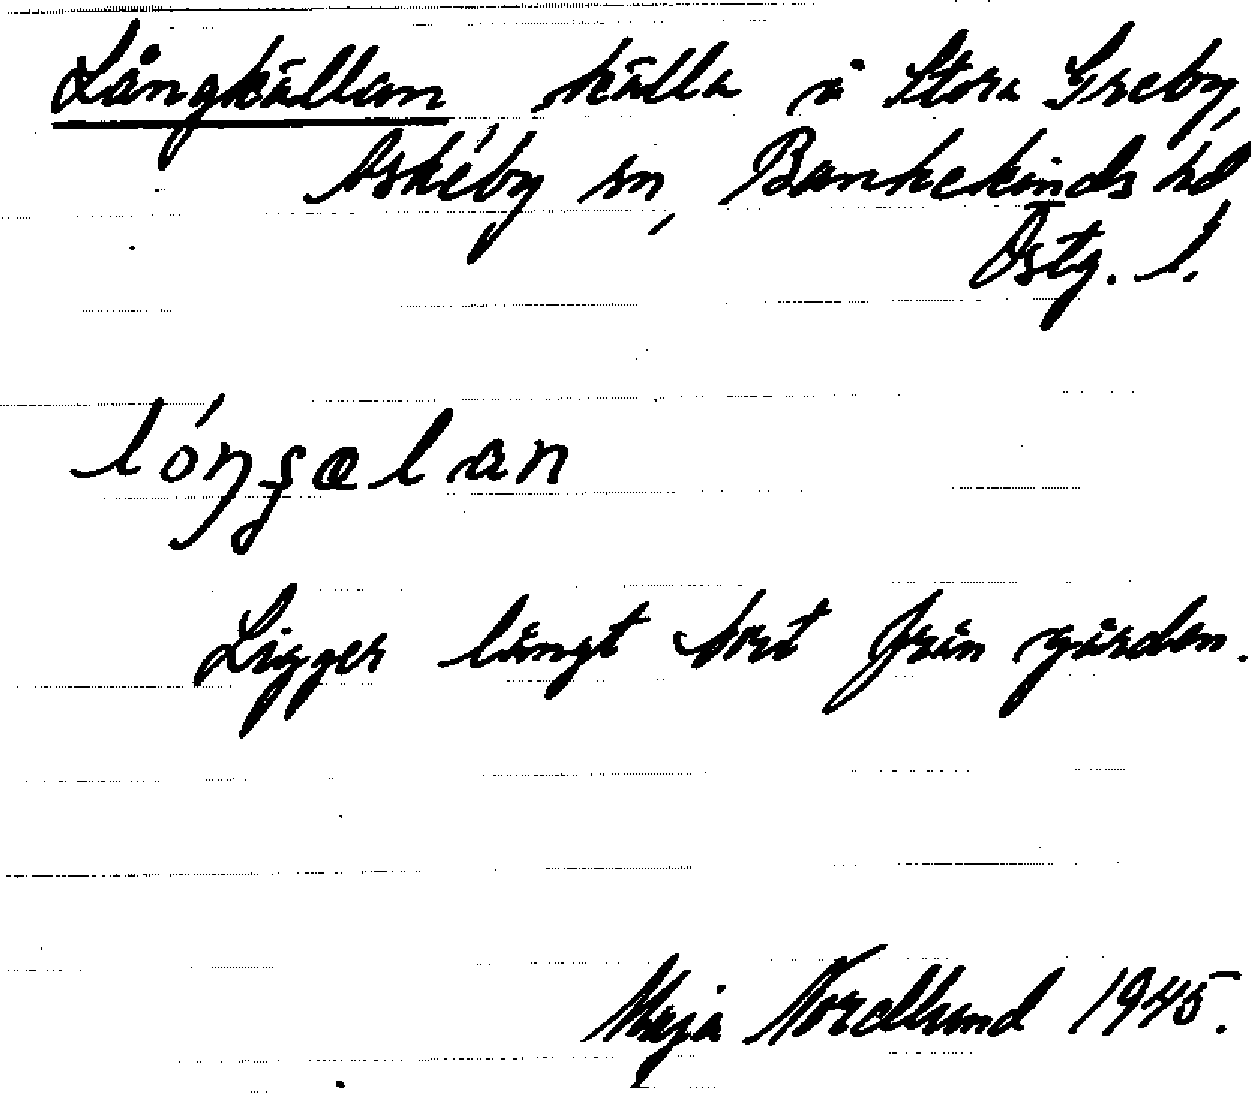 Långkällan källa i Stora Greby,
Askeby sn, Bankekinds hd
Östg. l.
lóŋʂælan
Ligger långt bort från gården.
Maja Nordlund 1945.